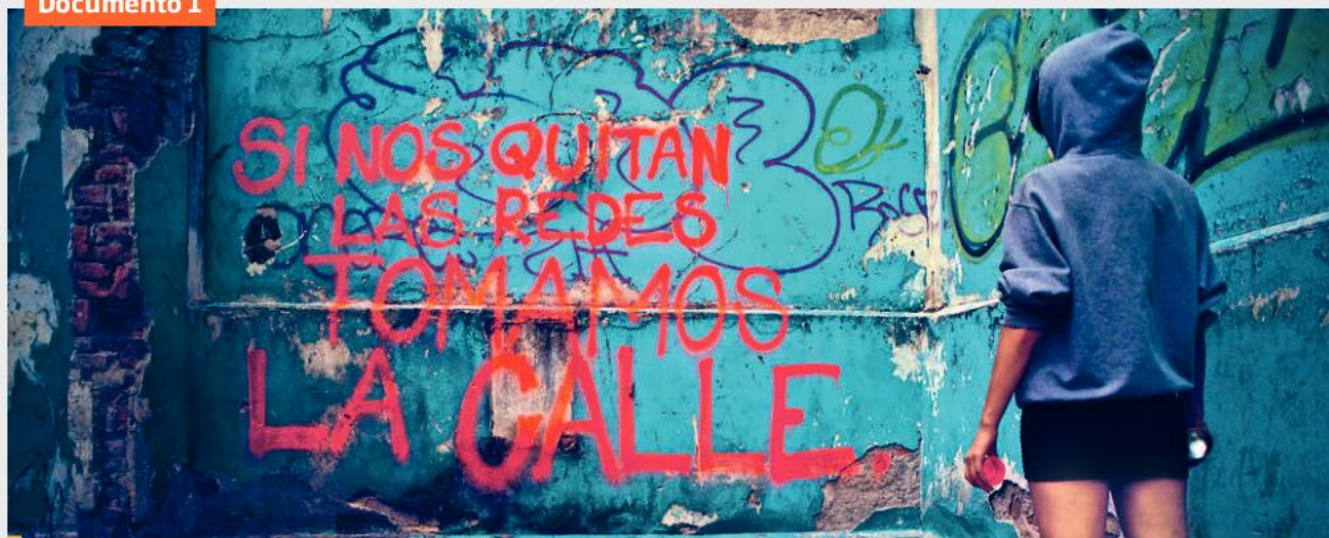 Documento 1
SI NOS QUITAN
LAS REDES
TOMAMOS
LA CALLE.